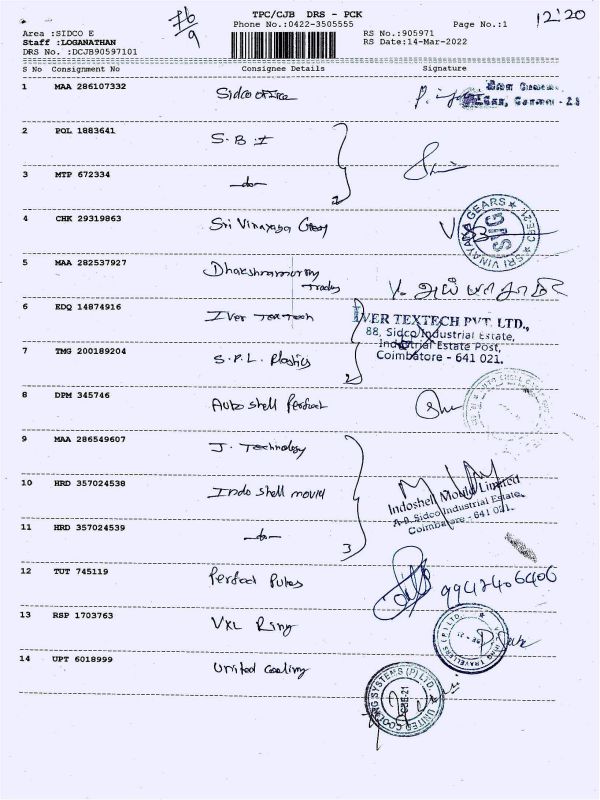 TPC/CJB DRS - PCK
12:20
Phone No.:0422-3505555 Page No.:1
Area :SIDCO E RS No.:905971
Staff :LOGANATHAN RS Date:14-Mar-2022
DRS No. :DCJB90597101
S No Consignment No Consignee Details Signature
1 MAA 286107332 Sidco office
2 POL 1883641 S.B.I
3 MTP 672334 -do-
2
4 CHK 29319863 Sri Vinayaga Gear
SRI VINAYAGA GEARS
SIIG
CBE-21
5 MAA 282537927 Dhakshnamorthy
Trades
6 EDQ 14874916 Iver Textech
IVER TEXTECH PVT. LTD.,
88, Sidco Industrial Estate,
Industrial Estate Post,
Coimbatore - 641 021.
7 TMG 200189204 S.P.L. Plastics
2
8 DPM 345746 Auto shell Perfect
9 MAA 286549607 J. Technology
10 HRD 357024538 Indo shell mould
Indoshell Mould Limited
A-9, Sidco Industrial Estate,
Coimbatore - 641 021.
11 HRD 357024539 -do-
3
12 TUT 745119 Perfect Pulses
9942406406
13 RSP 1703763 VXL Ring
TRAVELLERS (P) LTD.
14 UPT 6018999 United Cooling
UNITED COOLING SYSTEMS (P) LTD.
CBE-21